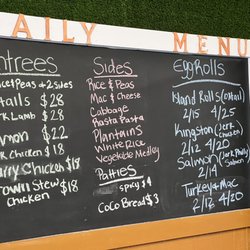 DAILY MENU
ntrees
Rice & Peas + 2 sides
tails $28
rk Lamb $28
mon $22
rk Chicken $18
rry Chicken $18
rown Stew $18
Chicken
Sides
Rice & Peas
Mac & Cheese
Cabbage
Rasta Pasta
Plantains
White Rice
Vegetable Medley
Patties
spicy $4
Coco Bread $3
Egg Rolls
Island Rolls (oxtail)
2/15 4/25
Kingston (Jerk Chicken)
2/12 4/20
Salmon
2/14
Turkey & Mac
2/12 4/20